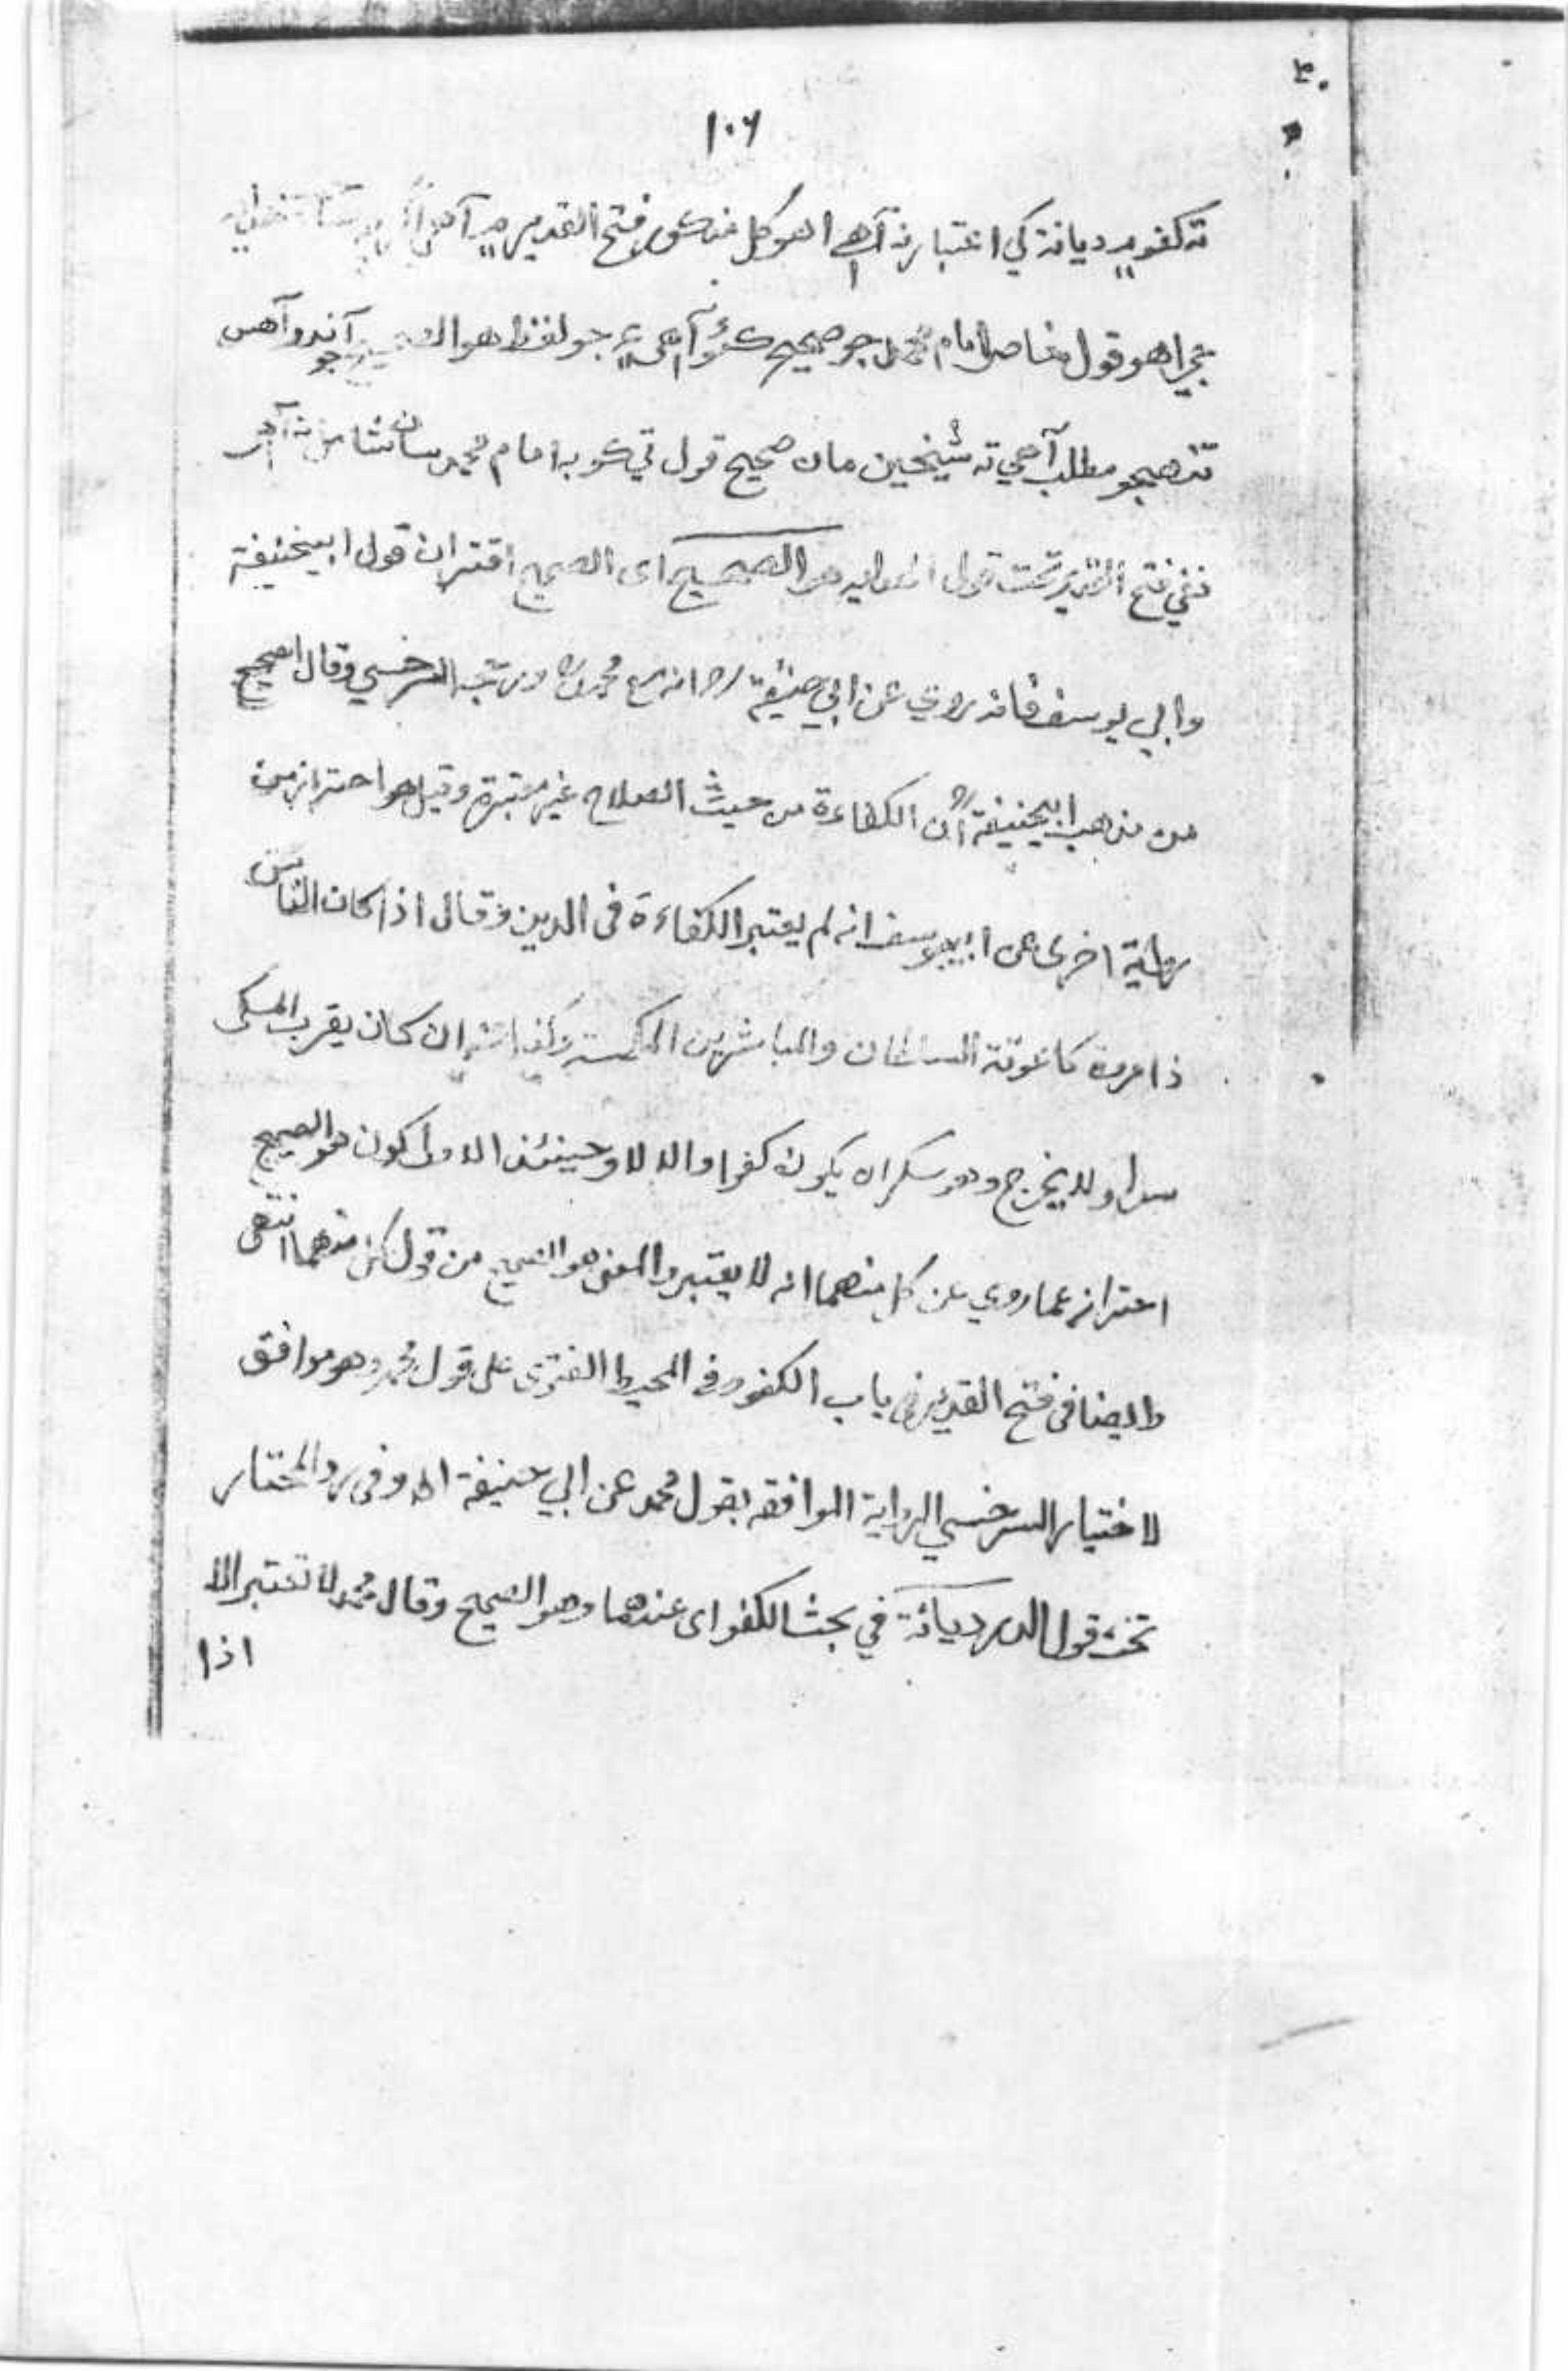 ۱۰۶
ته كفو ۾ ديانة کي اعتبار نه آهي اهو کل مذکور فتح القدير ۾ آهي
اهو قول امام محمد جو صحيح آهي جو لفظ هو آندو آهن
تنهيجو مطلب آهي ته شيخين مان صحيح قول تي کو به امام محمد سان
ففي فتح القدير تحت قول هو الصحيح اى الصحيح اقتران قول ابيحنيفة
وابي يوسف فانه روي عن ابي حنيفة انه مع محمد ورجحه السرخسي وقال الصحيح
من مذهب ابيحنيفة ان الكفاءة من حيث الصلاح غير معتبرة وقيل هو احتراز من
رواية اخرى عن ابييوسف انه لم يعتبر الكفاءة فى الدين وقال اذا كان الفاسق
ذا مروة كاعونة السلطان والمباشرين المكسة وكذا ان كان يقرب المسكر
سرا ولا يخرج وهو سكران يكون كفوا والا لا وحينئذ الاولى كون هو الصحيح
احتراز عما روي عن كل منهما انه لا يعتبر والمعنى هو الصحيح من قول كل منهما انتهى
وايضا فى فتح القدير فى باب الكفو وفى المحيط الفتوى على قول محمد وهو موافق
لاختيار السرخسي الرواية الموافقه بقول محمد عن ابي حنيفة اه وفى رد المختار
تحت قول الدر ديانة في بحث الكفو اى عندهما وهو الصحيح وقال محمد لا تعتبر الا
اذا